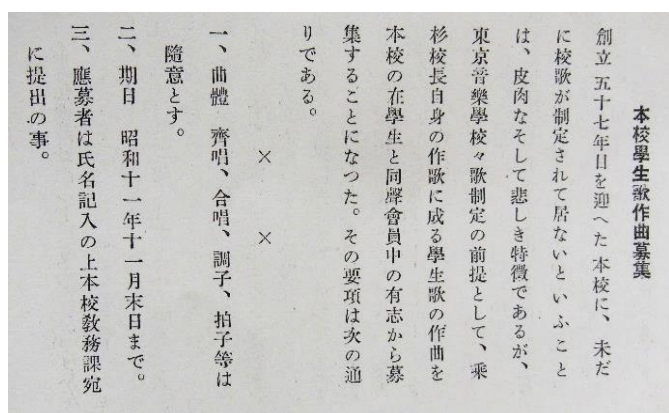 本校學生歌作曲募集
創立五十七年目を迎へた本校に、未だ
に校歌が制定されて居ないといふこと
は、皮肉なそして悲しき特徴であるが、
東京音樂學校々歌制定の前提として、乘
杉校長自身の作歌に成る學生歌の作曲を
本校の在學生と同聲會員中の有志から募
集することになつた。その要項は次の通
りである。
× ×
一、曲體 齊唱、合唱、調子、拍子等は
隨意とす。
二、期日 昭和十一年十一月末日まで。
三、應募者は氏名記入の上本校敎務課宛
に提出の事。